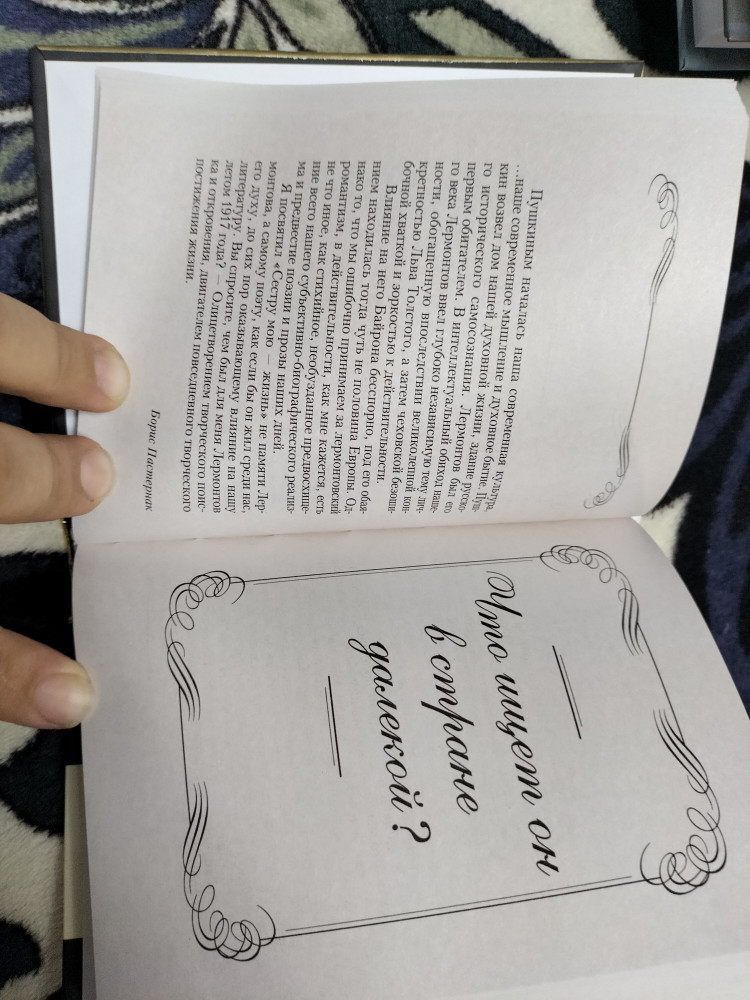 Пушкиным началась наша современная культура,
...наше современное мышление и духовное бытие. Пуш-
кин возвел дом нашей духовной жизни, здание русско-
го исторического самосознания. Лермонтов был его
первым обитателем. В интеллектуальный обиход наше-
го века Лермонтов ввел глубоко независимую тему лич-
ности, обогащенную впоследствии великолепной кон-
кретностью Льва Толстого, а затем чеховской безоши-
бочной хваткой и зоркостью к действительности.
Влияние на него Байрона бесспорно, под его обая-
нием находилась тогда чуть не половина Европы. Од-
нако то, что мы ошибочно принимаем за лермонтовский
романтизм, в действительности, как мне кажется, есть
не что иное, как стихийное, необузданное предвосхище-
ние всего нашего субъективно-биографического реализ-
ма и предвестие поэзии и прозы наших дней.
Я посвятил «Сестру мою — жизнь» не памяти Лер-
монтова, а самому поэту, как если бы он жил среди нас,
его духу, до сих пор оказывающему влияние на нашу
литературу. Вы спросите, чем был для меня Лермонтов
летом 1917 года? — Олицетворением творческого поис-
ка и откровения, двигателем повседневного творческого
постижения жизни.
Борис Пастернак
Что ищет он
в стране
далекой?